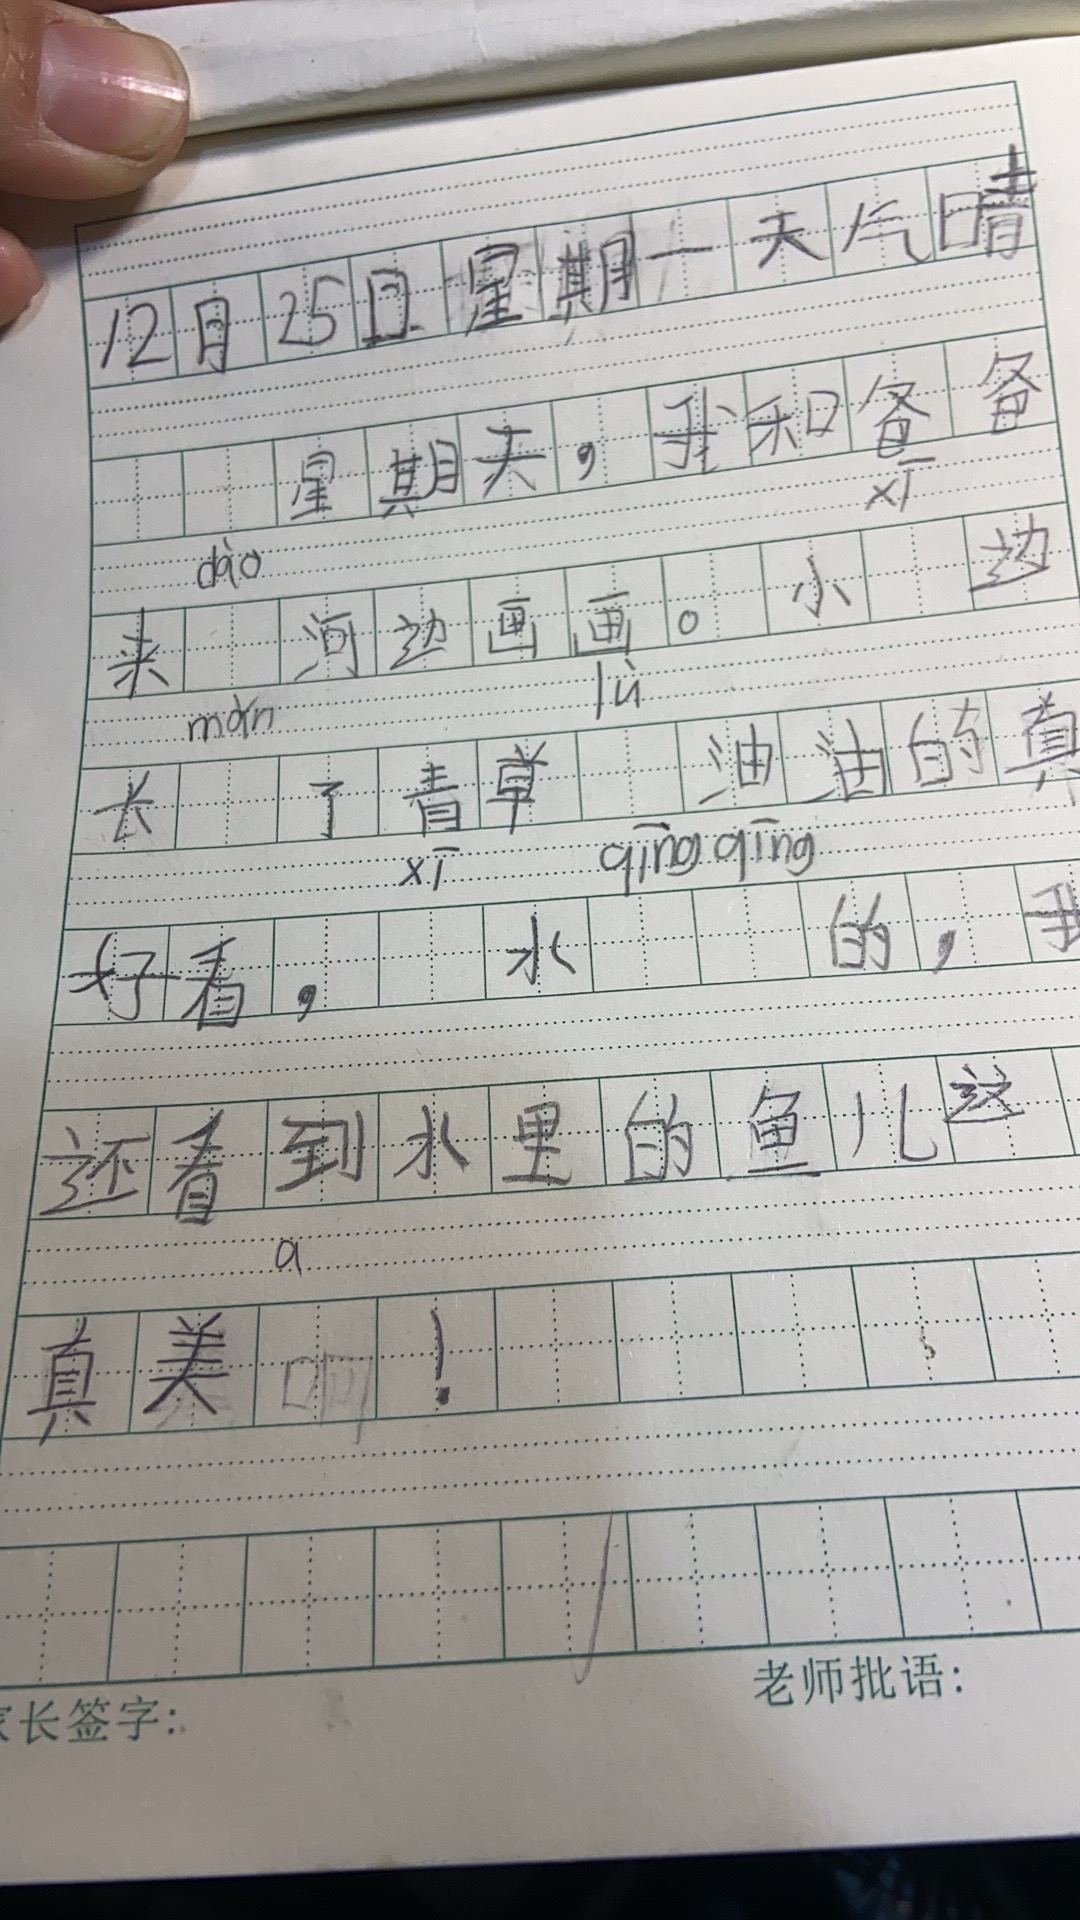 12月25日星期一天气晴
星期天,我和备备
dào xī
来 河边画画。小 边
mǎn lǜ
长 了青草 油油的真
xī qīng qīng
好看, 水 的,我
还看到水里的鱼儿这
a
真美啊!
老师批语:
家长签字: